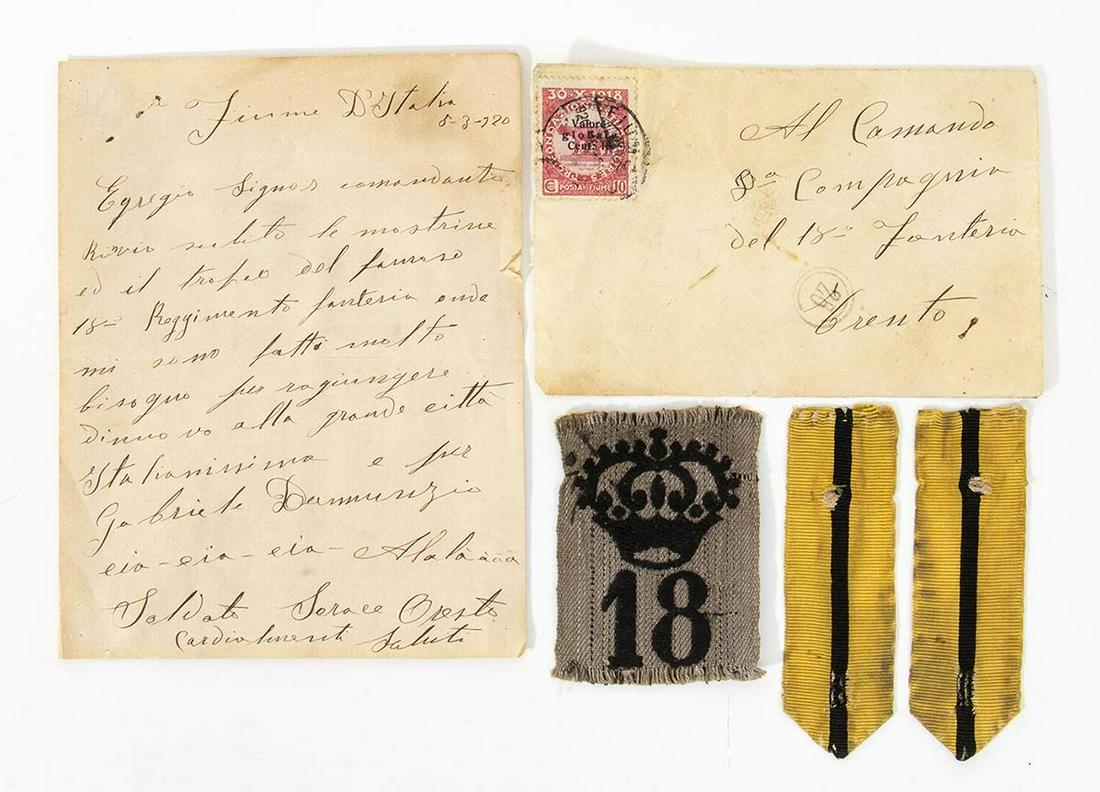 Fiume D'Italia
5-3-920
Egregio Signor comandante
Rinvio subito le mostrine
ed il trofeo del famoso
18mo Reggimento fanteria onde
mi sono fatti molto
bisogno per ragiungere
dinuovo alla grande città
Italianissima e per
Gabriele Dannunzio
eia-eia-eia- Alalà ààà
Soldato Sorace Oreste
Cardialmenti Saluti
30·X·1918
FONDAZIONE
Valore
globale
Cent.
POSTA FIUME 10
Al Comando
8a Compagnia
del 18mo Fanteria
Trento
18